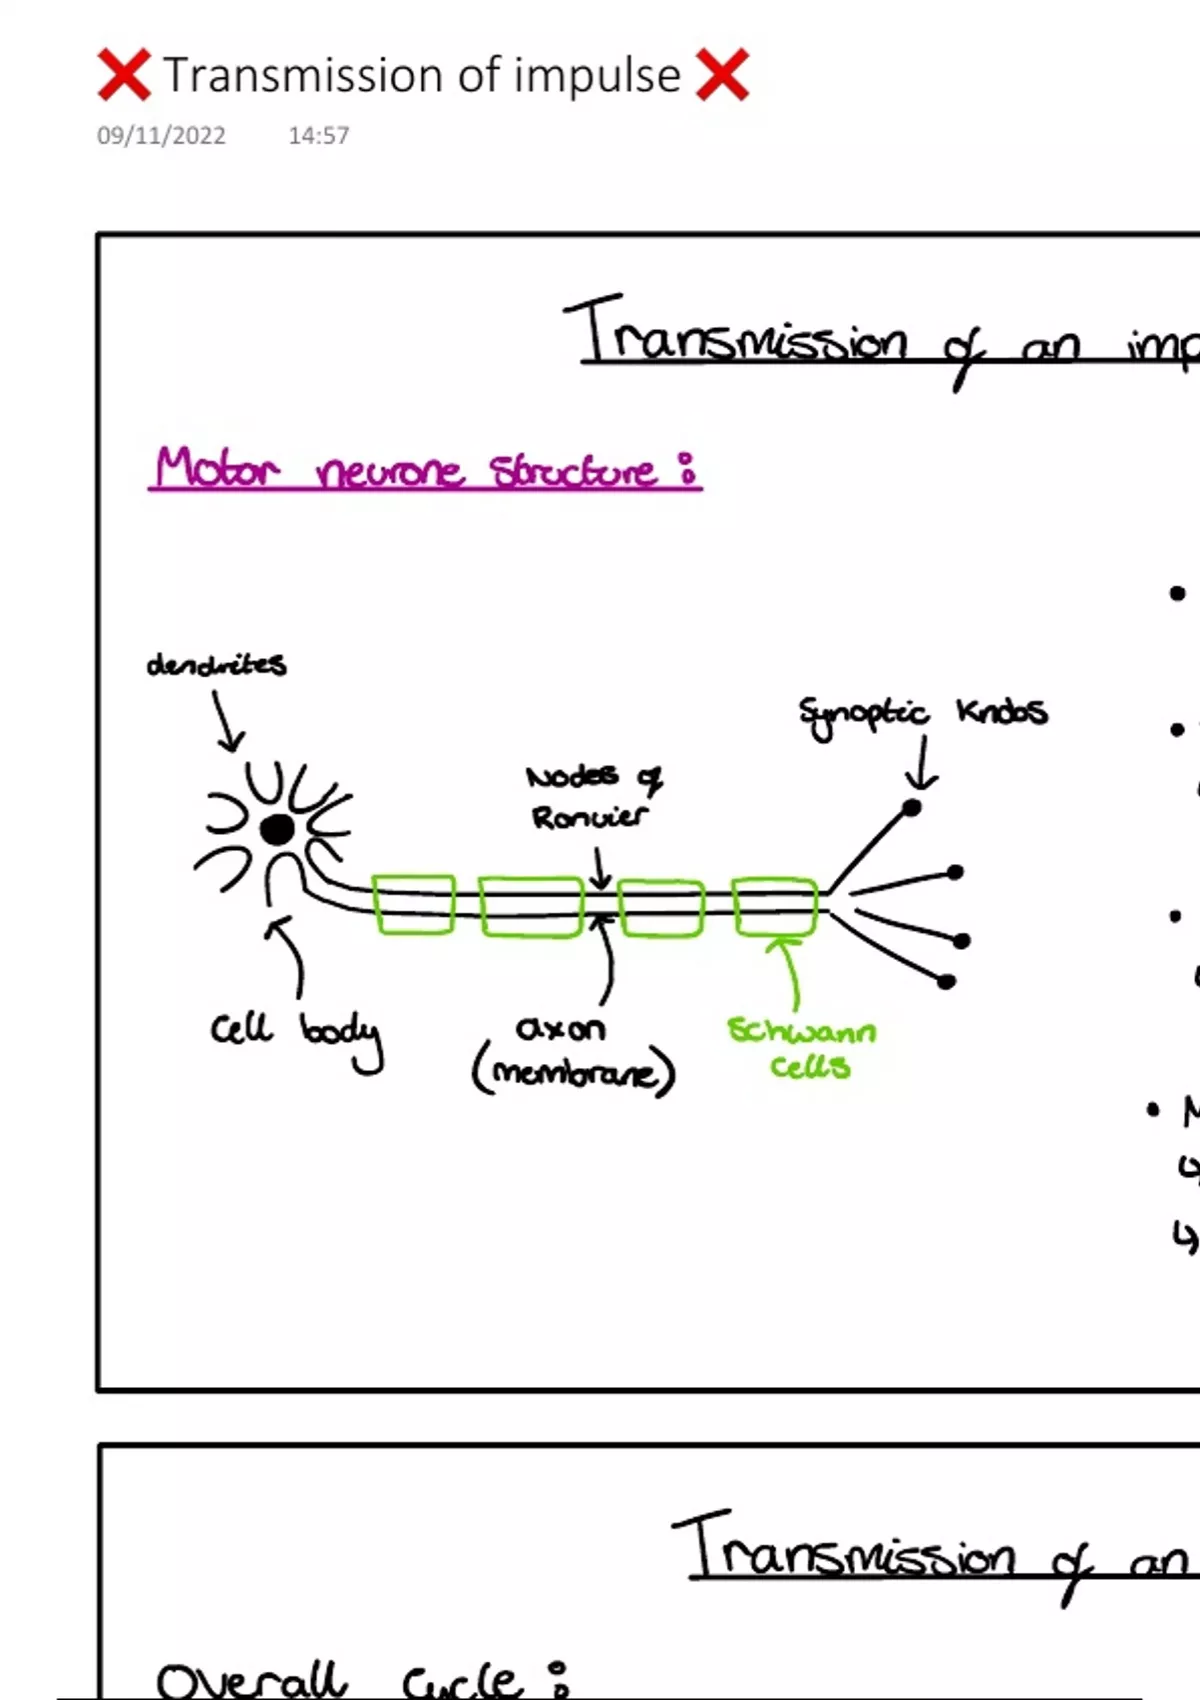 ❌ Transmission of impulse ❌
09/11/2022 14:57
Transmission of an imp
Motor neurone structure:
dendrites
Synoptic Knobs
Nodes of
Ranvier
Cell body
axon
(membrane)
Schwann
cells
M
Transmission of an
Overall cycle: